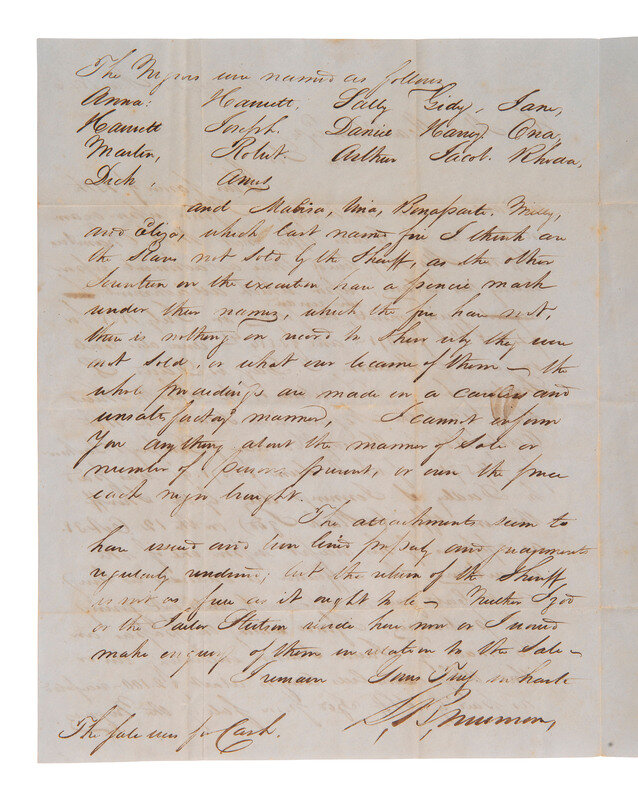 The Negros were named as follows
Anna. Harriett. Sally Gidy, Jane,
Harriett Joseph. Daniel Harry Ona,
Martin, Robert. Arthur Jacob. Rhoda,
Dick, Amis
and Malisa, Vina, Bonaparte. Milly,
and Eliza, which last named five I think are
the Slaves not sold by the Sheriff, as the other
Seventeen on the execution have a pencil mark
under their names, which the five have not,
there is nothing on record to Shew why they were
not sold, or what ever became of them — the
whole proceedings are made in a careless and
unsatisfactory manner, I cannot inform
You anything about the manner of Sale or
number of persons present, or even the price
each negro brought.
The attachments seem to
have issued and been levied properly and judgments
regularly rendered, but the return of the Sheriff
is not as full as it ought to be — Neither
or the Jailor reside here now or I would
make enquiry of them in relation to the Sale —
I remain Yours Truly in haste
The Sale was for Cash.